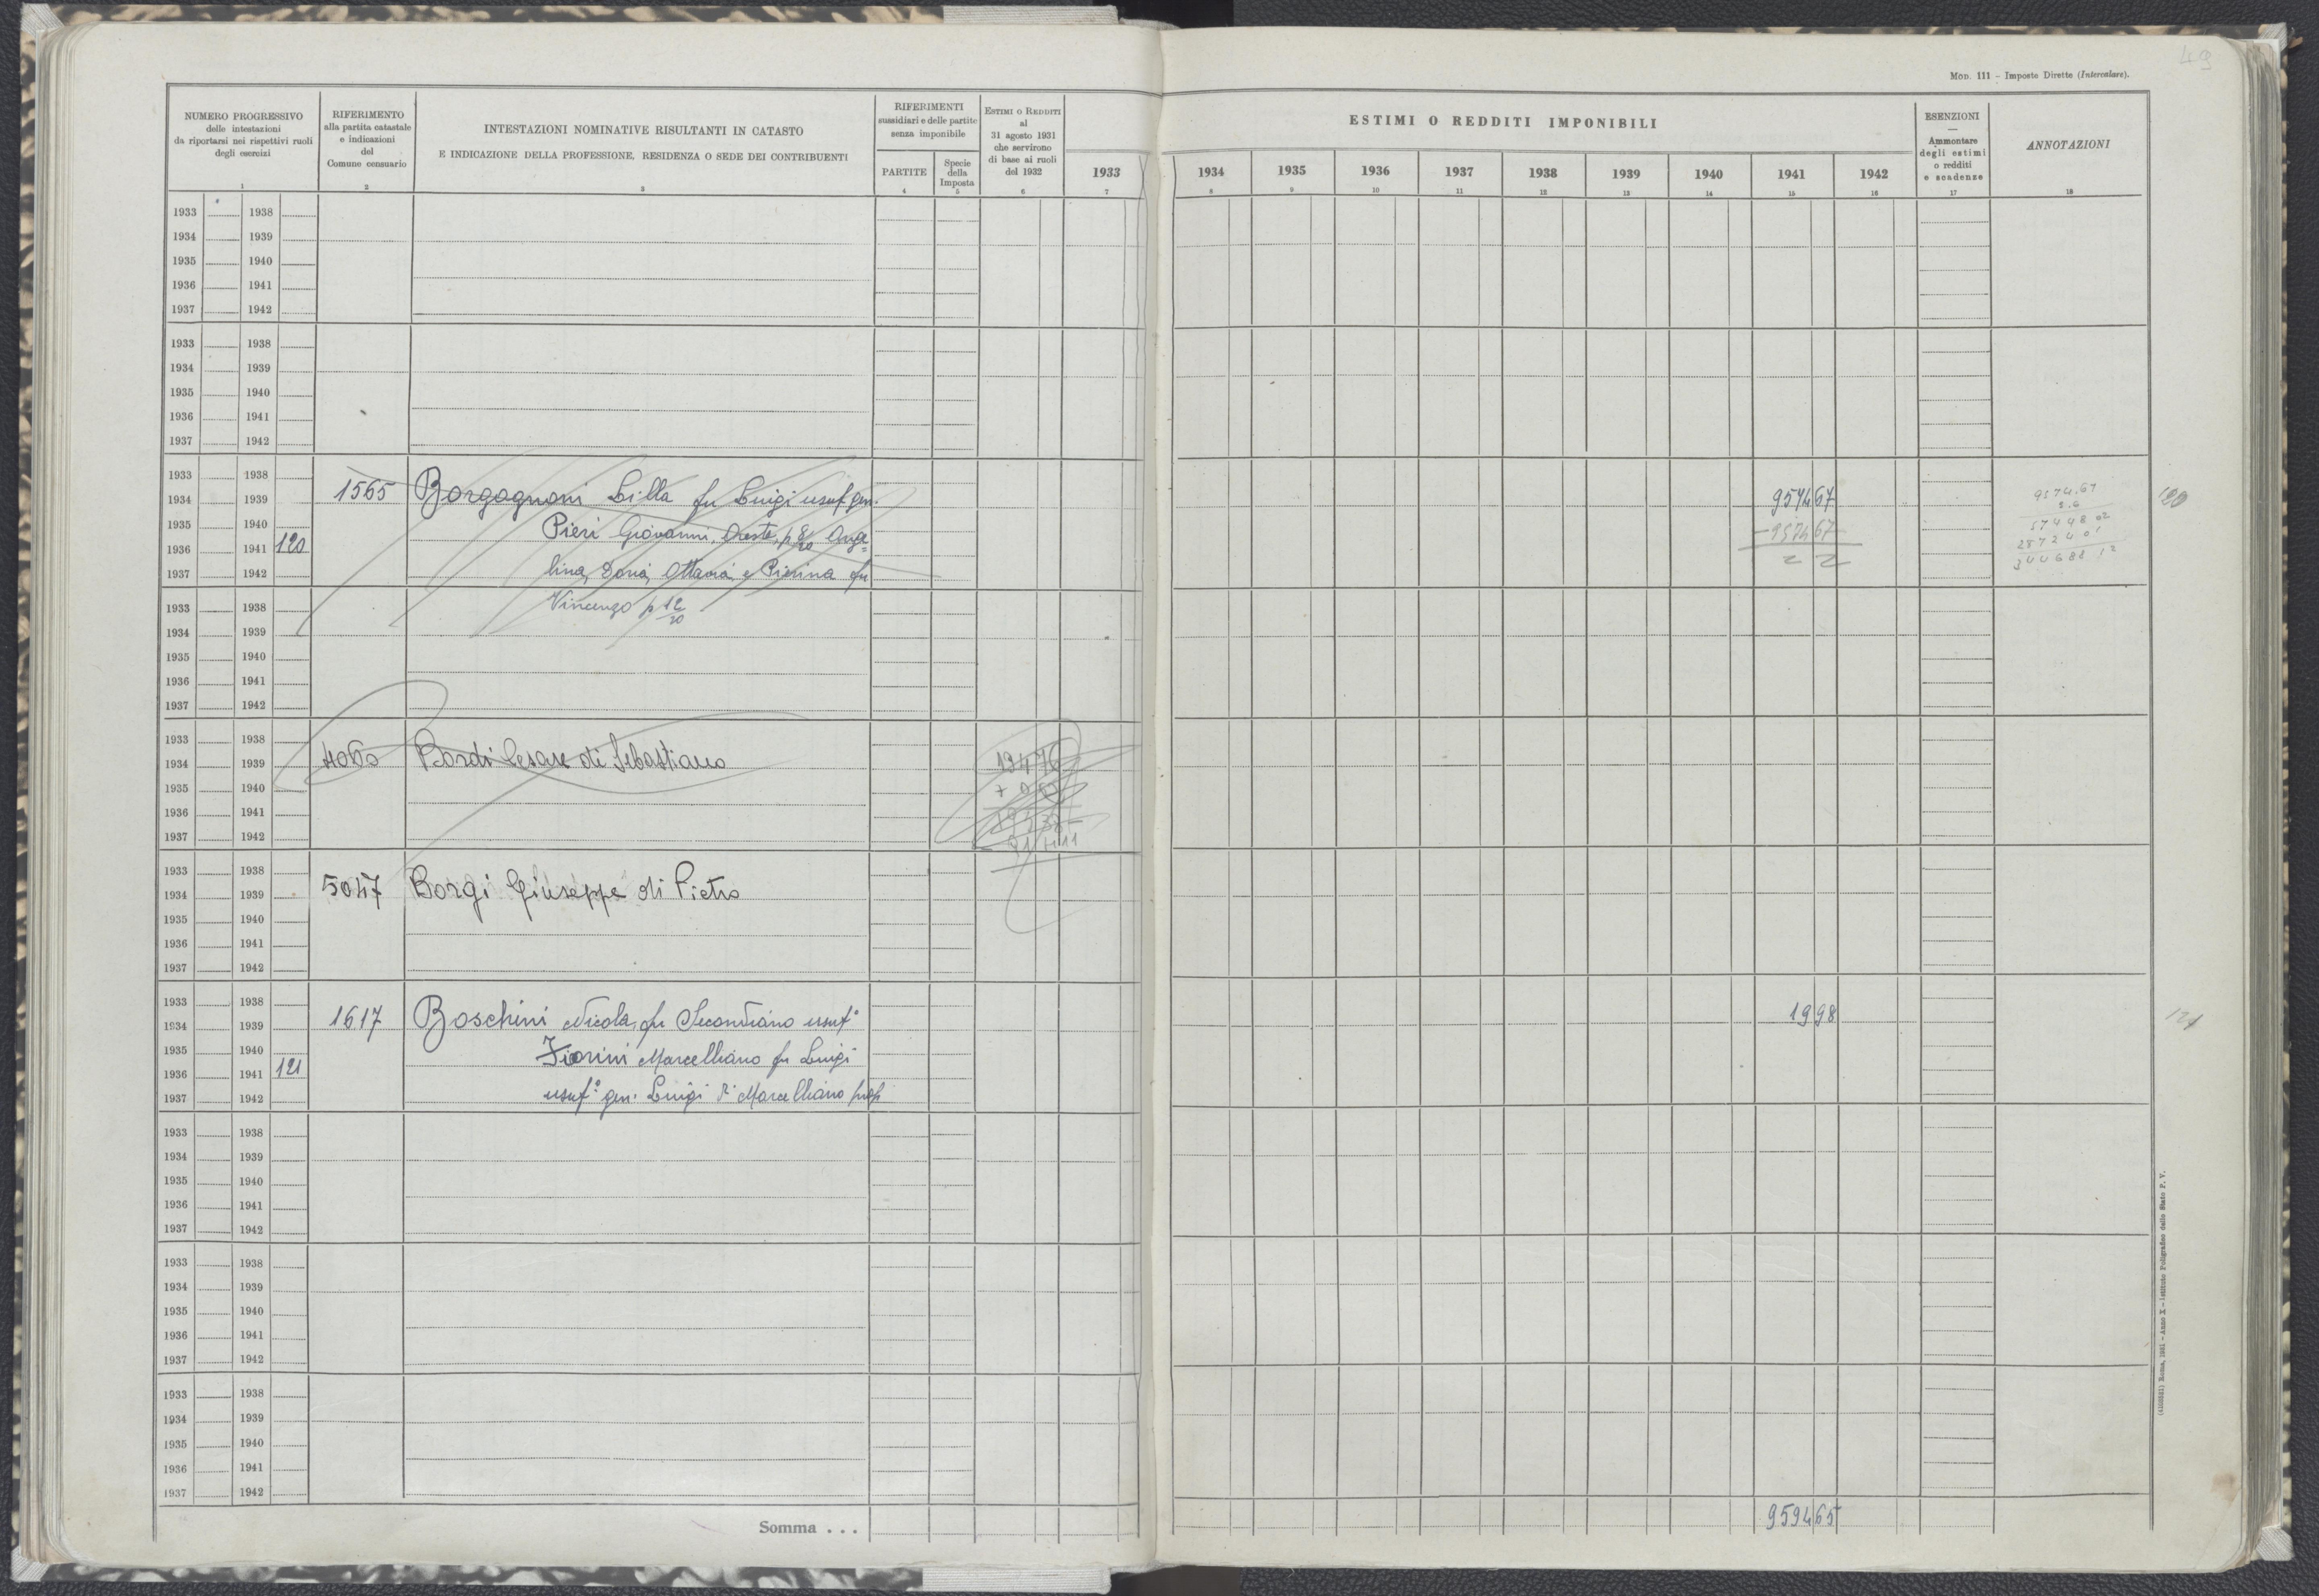 49
MOD. 111 – Imposte Dirette (Intercalare).
NUMERO PROGRESSIVO
delle intestazioni
da riportarsi nei rispettivi ruoli
degli esercizi
1
RIFERIMENTO
alla partita catastale
e indicazioni
del
Comune censuario
2
INTESTAZIONI NOMINATIVE RISULTANTI IN CATASTO
E INDICAZIONE DELLA PROFESSIONE, RESIDENZA O SEDE DEI CONTRIBUENTI
3
RIFERIMENTI
sussidiari e delle partite
senza imponibile
PARTITE
4
Specie
della
Imposta
5
ESTIMI O REDDITI
al
31 agosto 1931
che servirono
di base ai ruoli
del 1932
6
ESTIMI O REDDITI IMPONIBILI
1933 1934 1935 1936 1937 1938 1939 1940 1941 1942
7 8 9 10 11 12 13 14 15 16
ESENZIONI
—
Ammontare
degli estimi
o redditi
e scadenze
17
ANNOTAZIONI
18
1933 1938
1934 1939
1935 1940
1936 1941
1937 1942
1933 1938
1934 1939
1935 1940
1936 1941
1937 1942
1933 1938
1934 1939 1565 Borgagnoni Lilla fu Luigi usuf. gen. 9574 67 9574.67
1935 1940 Pieri Giovanni, Oreste, p 8/20 Ange= – 9574 67 57448 02
1936 1941 120 lina, Doria, Ottavia e Pierina fu
1937 1942
120
1933 1938 Vincenzo p 12/20
1934 1939
1935 1940
1936 1941
1937 1942
1933 1938
1934 1939 4060 Bordi Cesare di Sebastiano 194 76
1935 1940
1936 1941
1937 1942
1933 1938
1934 1939 5047 Borgi Giuseppe di Pietro
1935 1940
1936 1941
1937 1942
1933 1938
1934 1939 1617 Boschini Nicola, fu Secondiano usuf° 19 98
1935 1940 Fiorini Marcelliano fu Luigi
1936 1941 121
1937 1942 usuf° gen. Luigi di Marcelliano prop
121
1933 1938
1934 1939
1935 1940
1936 1941
1937 1942
1933 1938
1934 1939
1935 1940
1936 1941
1937 1942
1933 1938
1934 1939
1935 1940
1936 1941
1937 1942
Somma . . . 9594 65
Roma, 1931 – Anno X – Istituto Poligrafico dello Stato P. V.